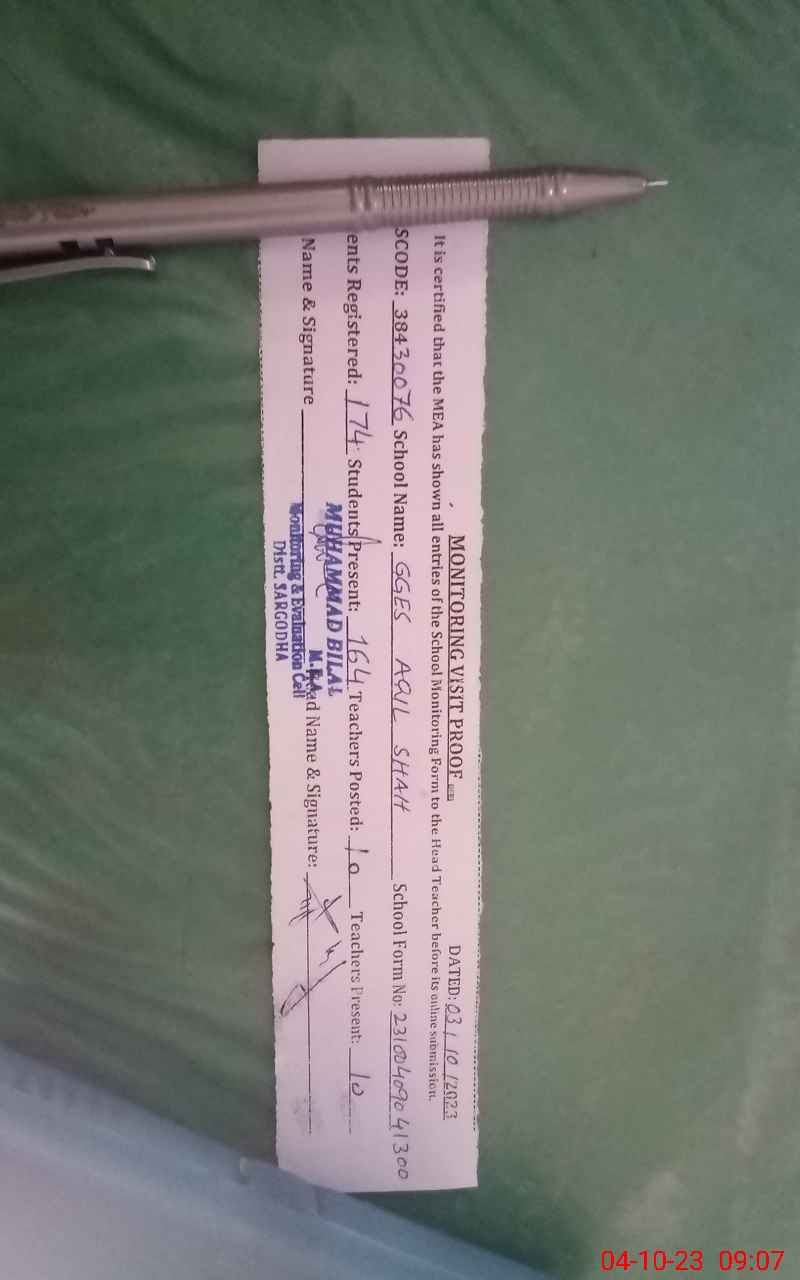 MONITORING VISIT PROOF DATED: 03/10/2023
It is certified that the MEA has shown all entries of the School Monitoring Form to the Head Teacher before its online submission.
SCODE: 38430076 School Name: GGES AQIL SHAH School Form No: 23100409041300
ents Registered: 174 Students Present: 164 Teachers Posted: 10 Teachers Present: 10
Name & Signature ad Name & Signature:
MUHAMMAD BILAL
M.E.A
Monitoring & Evaluation Cell
Distt. SARGODHA
04-10-23 09:07